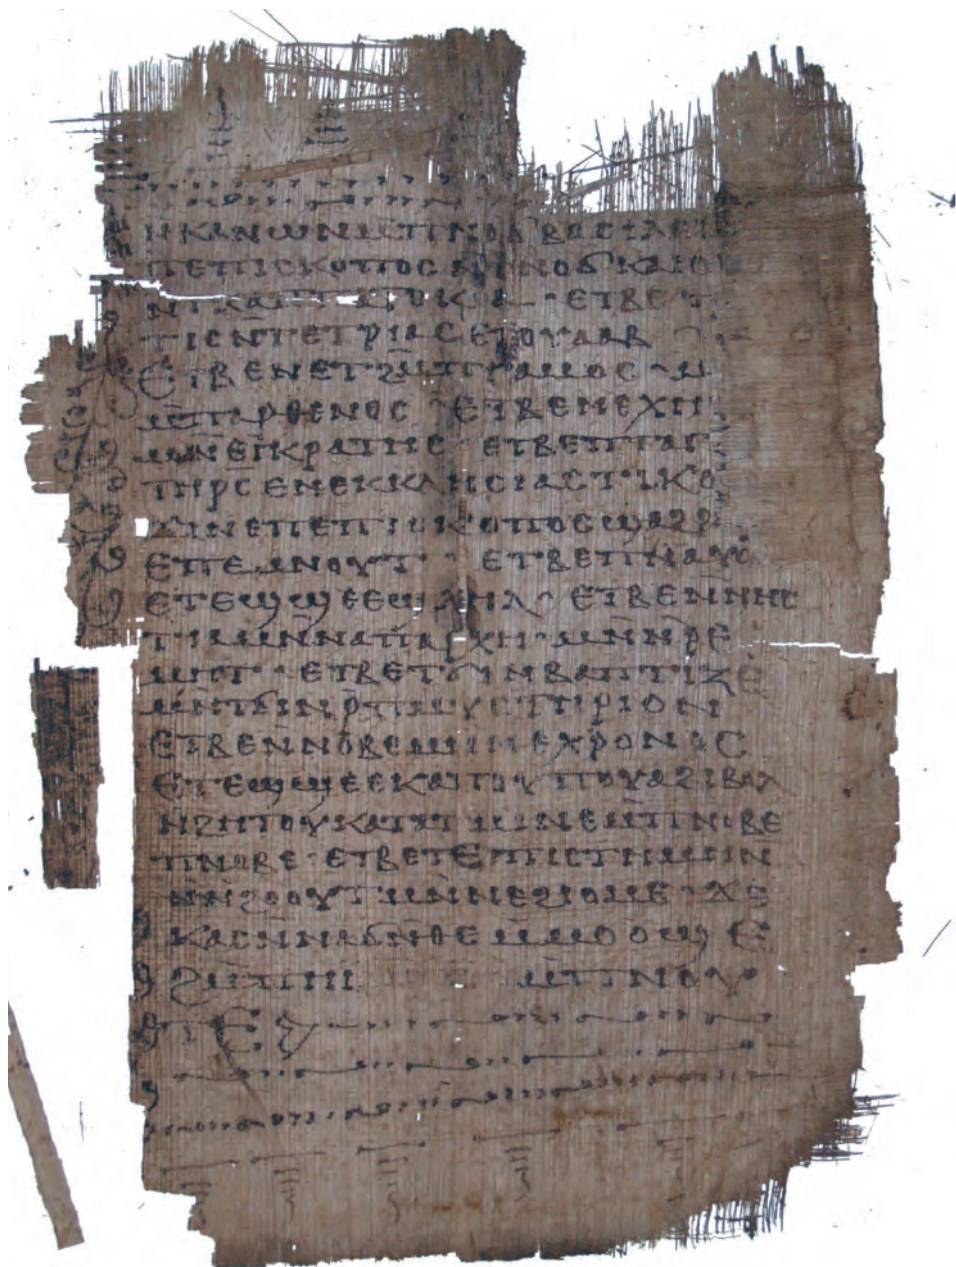 ⲛⲕⲁⲛⲱⲛ ⲙ̅ⲡⲛⲟϭ ⲃⲁⲥⲓⲗⲉⲓ
ⲡⲉⲡⲓⲥⲕⲟⲡⲟⲥ
ⲉⲧⲃⲉ ⲧ
ⲧⲓⲥ ⲛ̅ⲧⲉⲧⲣⲓⲁⲥ ⲉⲧⲟⲩⲁⲁⲃ
ⲉⲧⲃⲉ ⲛⲉⲧϩⲙ̅ⲡⲅⲁⲙⲟⲥ ⲙ
ⲙ̅ⲡⲁⲣⲑⲉⲛⲟⲥ ⲉⲧⲃⲉ ⲙⲉⲭⲏ
ⲙⲛ̅ⲉⲅⲕⲣⲁⲧⲏⲥ ⲉⲧⲃⲉ ⲡⲧⲁⲅ
ⲧⲏⲣⲥ ⲉⲛⲉⲕⲕⲗⲏⲥⲓⲁⲥⲧⲓⲕⲟ
ϫⲓⲛ ⲉⲡⲉⲡⲓⲥⲕⲟⲡⲟⲥ ϣⲁϩⲣ
ⲉⲡⲉⲙⲛⲟⲩⲧ ⲉⲧⲃⲉ ⲡⲛⲁⲩ
ⲉⲧⲉϣϣⲉ ⲉϣⲗⲏⲗ ⲉⲧⲃⲉ ⲛ̅ⲛⲏⲥ
ⲧⲓⲁ ⲙⲛ̅ⲛⲁⲡⲁⲣⲭⲏ ⲙⲛ̅ⲛ̅ⲣⲉ
ⲙⲏⲧ ⲉⲧⲃⲉ ⲧϭⲓⲛⲃⲁⲡⲧⲓⲍⲉ
ⲙⲛ̅ⲧϭⲓⲛⲣ̅ⲡⲙⲩⲥⲧⲏⲣⲓⲟⲛ
ⲉⲧⲃⲉ ⲛ̅ⲛⲟⲃⲉ ⲙⲛ̅ⲛⲉⲭⲣⲟⲛⲟⲥ
ⲉⲧⲉϣϣⲉ ⲉⲕⲁⲡⲟⲩⲡⲟⲩⲁ ϩⲓⲃⲟⲗ
ⲛ̅ϩⲏⲧⲟⲩ ⲕⲁⲧⲁ ⲧⲙⲓⲛⲉ ⲙ̅ⲡⲛⲟⲃⲉ
ⲡⲛⲟⲃⲉ ⲉⲧⲃⲉ ⲧⲉⲡⲓⲥⲧⲏⲙⲏ ⲛ
ⲛⲛ̅ϩⲟⲟⲩⲧ ⲙⲛ̅ⲛⲉϩⲓⲟⲙⲉ ϫⲉ
ⲕⲁⲥ ⲛ̅ⲛⲁϭⲛ̅ⲑⲉ ⲙ̅ⲙⲟⲟϣⲉ
ϩⲙ̅ⲡⲏⲓ ⲙ̅ⲡⲛⲟⲩ
ⲧⲉ